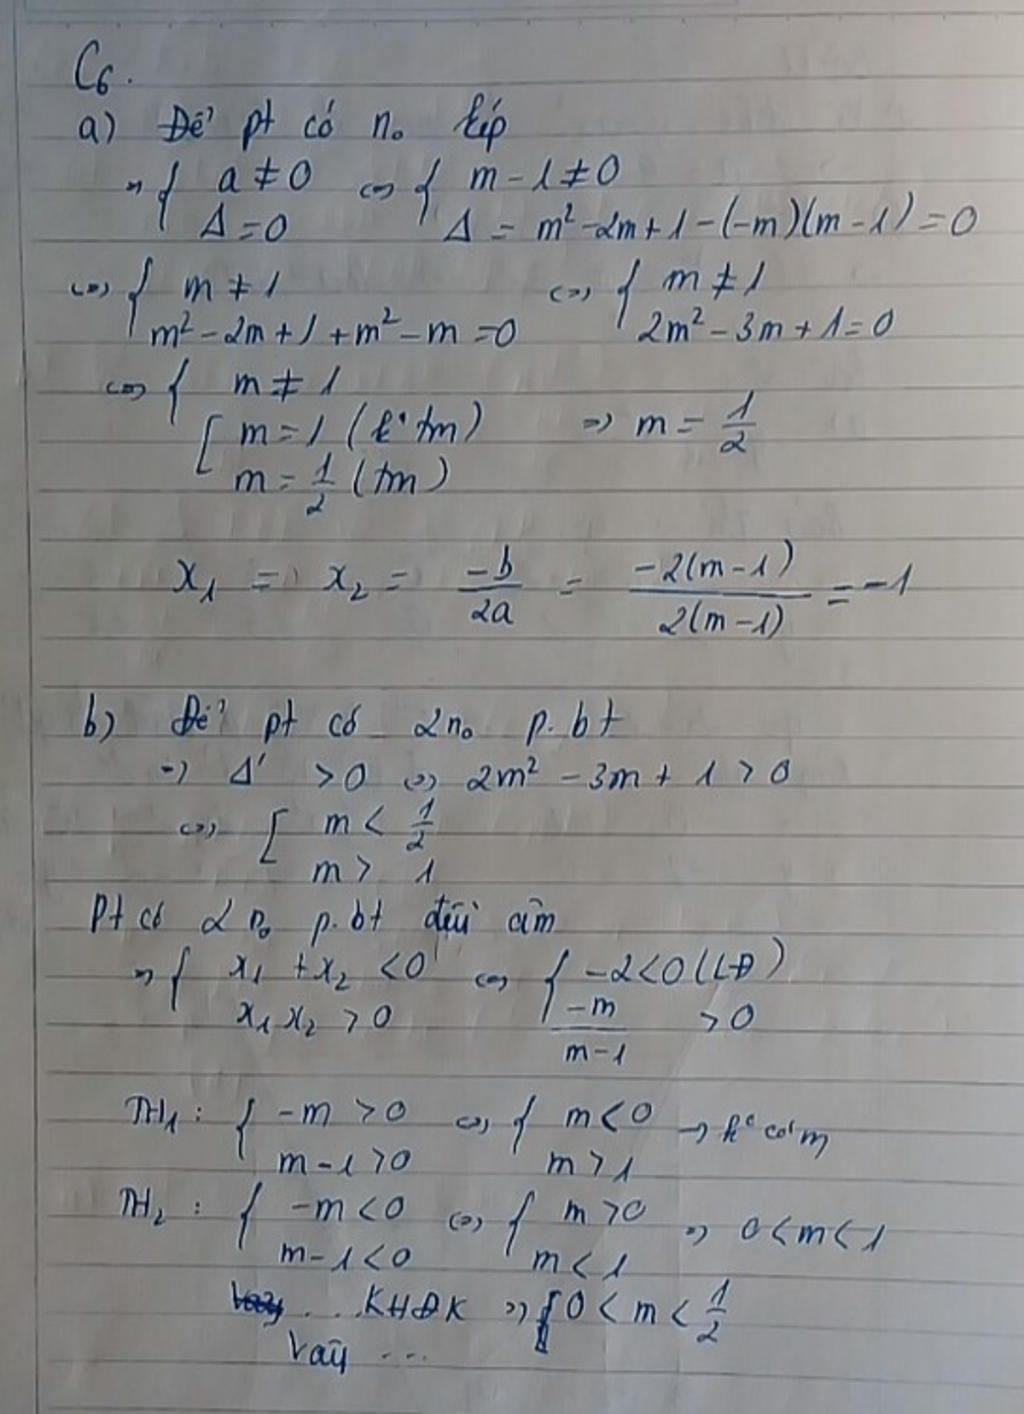 C6.
a) Để pt có n₀ kép
=> { a ≠ 0 <=> { m - 1 ≠ 0
Δ = 0 Δ = m² - 2m + 1 - (-m)(m - 1) = 0
<=> { m ≠ 1 <=> { m ≠ 1
m² - 2m + 1 + m² - m = 0 2m² - 3m + 1 = 0
<=> { m ≠ 1
[ m = 1 (k° tm) => m = 1/2
m = 1/2 (tm)
x₁ = x₂ = -b/2a = -2(m - 1)/2(m - 1) = -1
b) Để pt có 2 n₀ p.bt
=> Δ' > 0 <=> 2m² - 3m + 1 > 0
<=> [ m < 1/2
m > 1
Pt có 2 n₀ p.bt đều âm
=> { x₁ + x₂ < 0 <=> { -2 < 0 (LĐ)
x₁ x₂ > 0 -m/m-1 > 0
TH₁ : { -m > 0 <=> { m < 0 → k° có m
m - 1 > 0 m > 1
TH₂ : { -m < 0 <=> { m > 0 => 0 < m < 1
m - 1 < 0 m < 1
... KHĐK => 0 < m < 1/2
Vậy ...